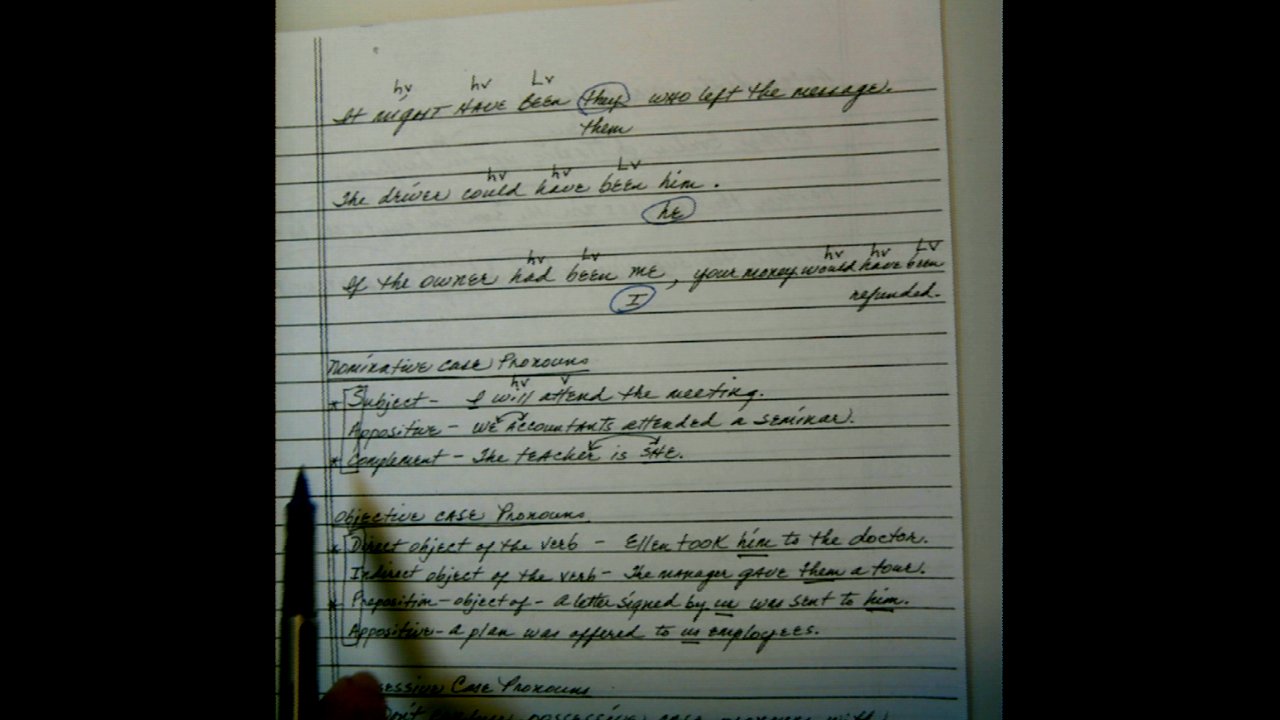 hv hv Lv
It might HAVE BEEN they who left the message.
them
hv hv Lv
The driver could have been him.
he
hv Lv hv hv LV
If the owner had been me, your money would have been
I refunded.
Nominative case Pronouns
hv v
* Subject - I will attend the meeting.
Appositive - WE Accountants attended a seminar.
* Complement - The teacher is SHE.
Objective CASE Pronouns
* Direct object of the verb - Ellen took him to the doctor.
Indirect object of the verb - The manager gave them a tour.
* Preposition - object of - a letter signed by us was sent to him.
Appositive - a plan was offered to us employees.
Case Pronouns
possessive case pronouns with